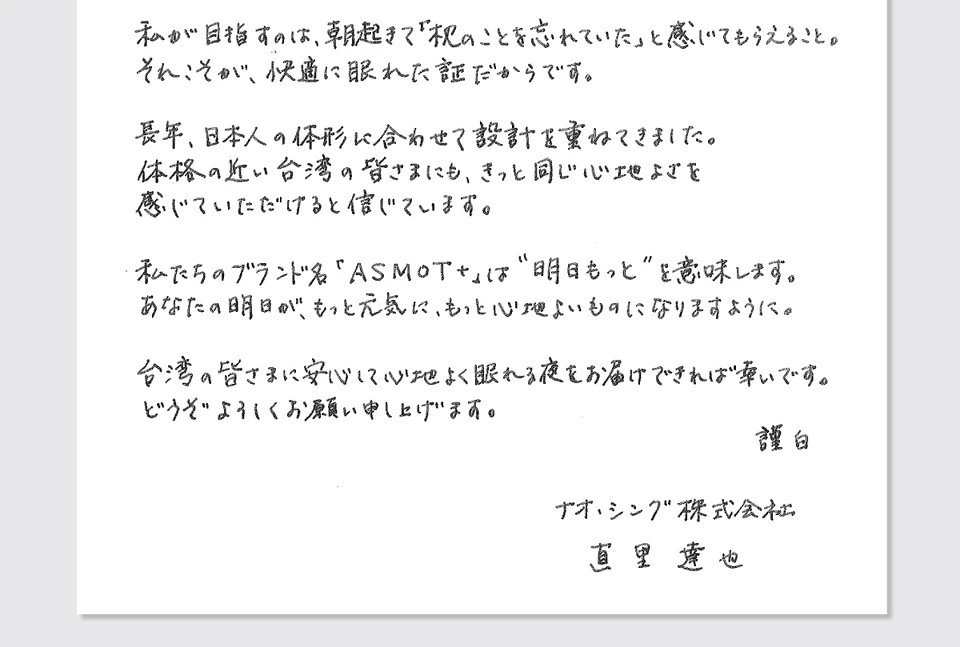 私が目指すのは、朝起きて「枕のことを忘れていた」と感じてもらえること。
それこそが、快適に眠れた証だからです。
長年、日本人の体形に合わせて設計を重ねてきました。
体格の近い台湾の皆さまにも、きっと同じ心地よさを
感じていただけると信じています。
私たちのブランド名「ASMOT+」は“明日もっと”を意味します。
あなたの明日が、もっと元気に、もっと心地よいものになりますように。
台湾の皆さまに安心して心地よく眠れる夜をお届けできれば幸いです。
どうぞよろしくお願い申し上げます。
謹白
ナオ・シング株式会社
直里 達也